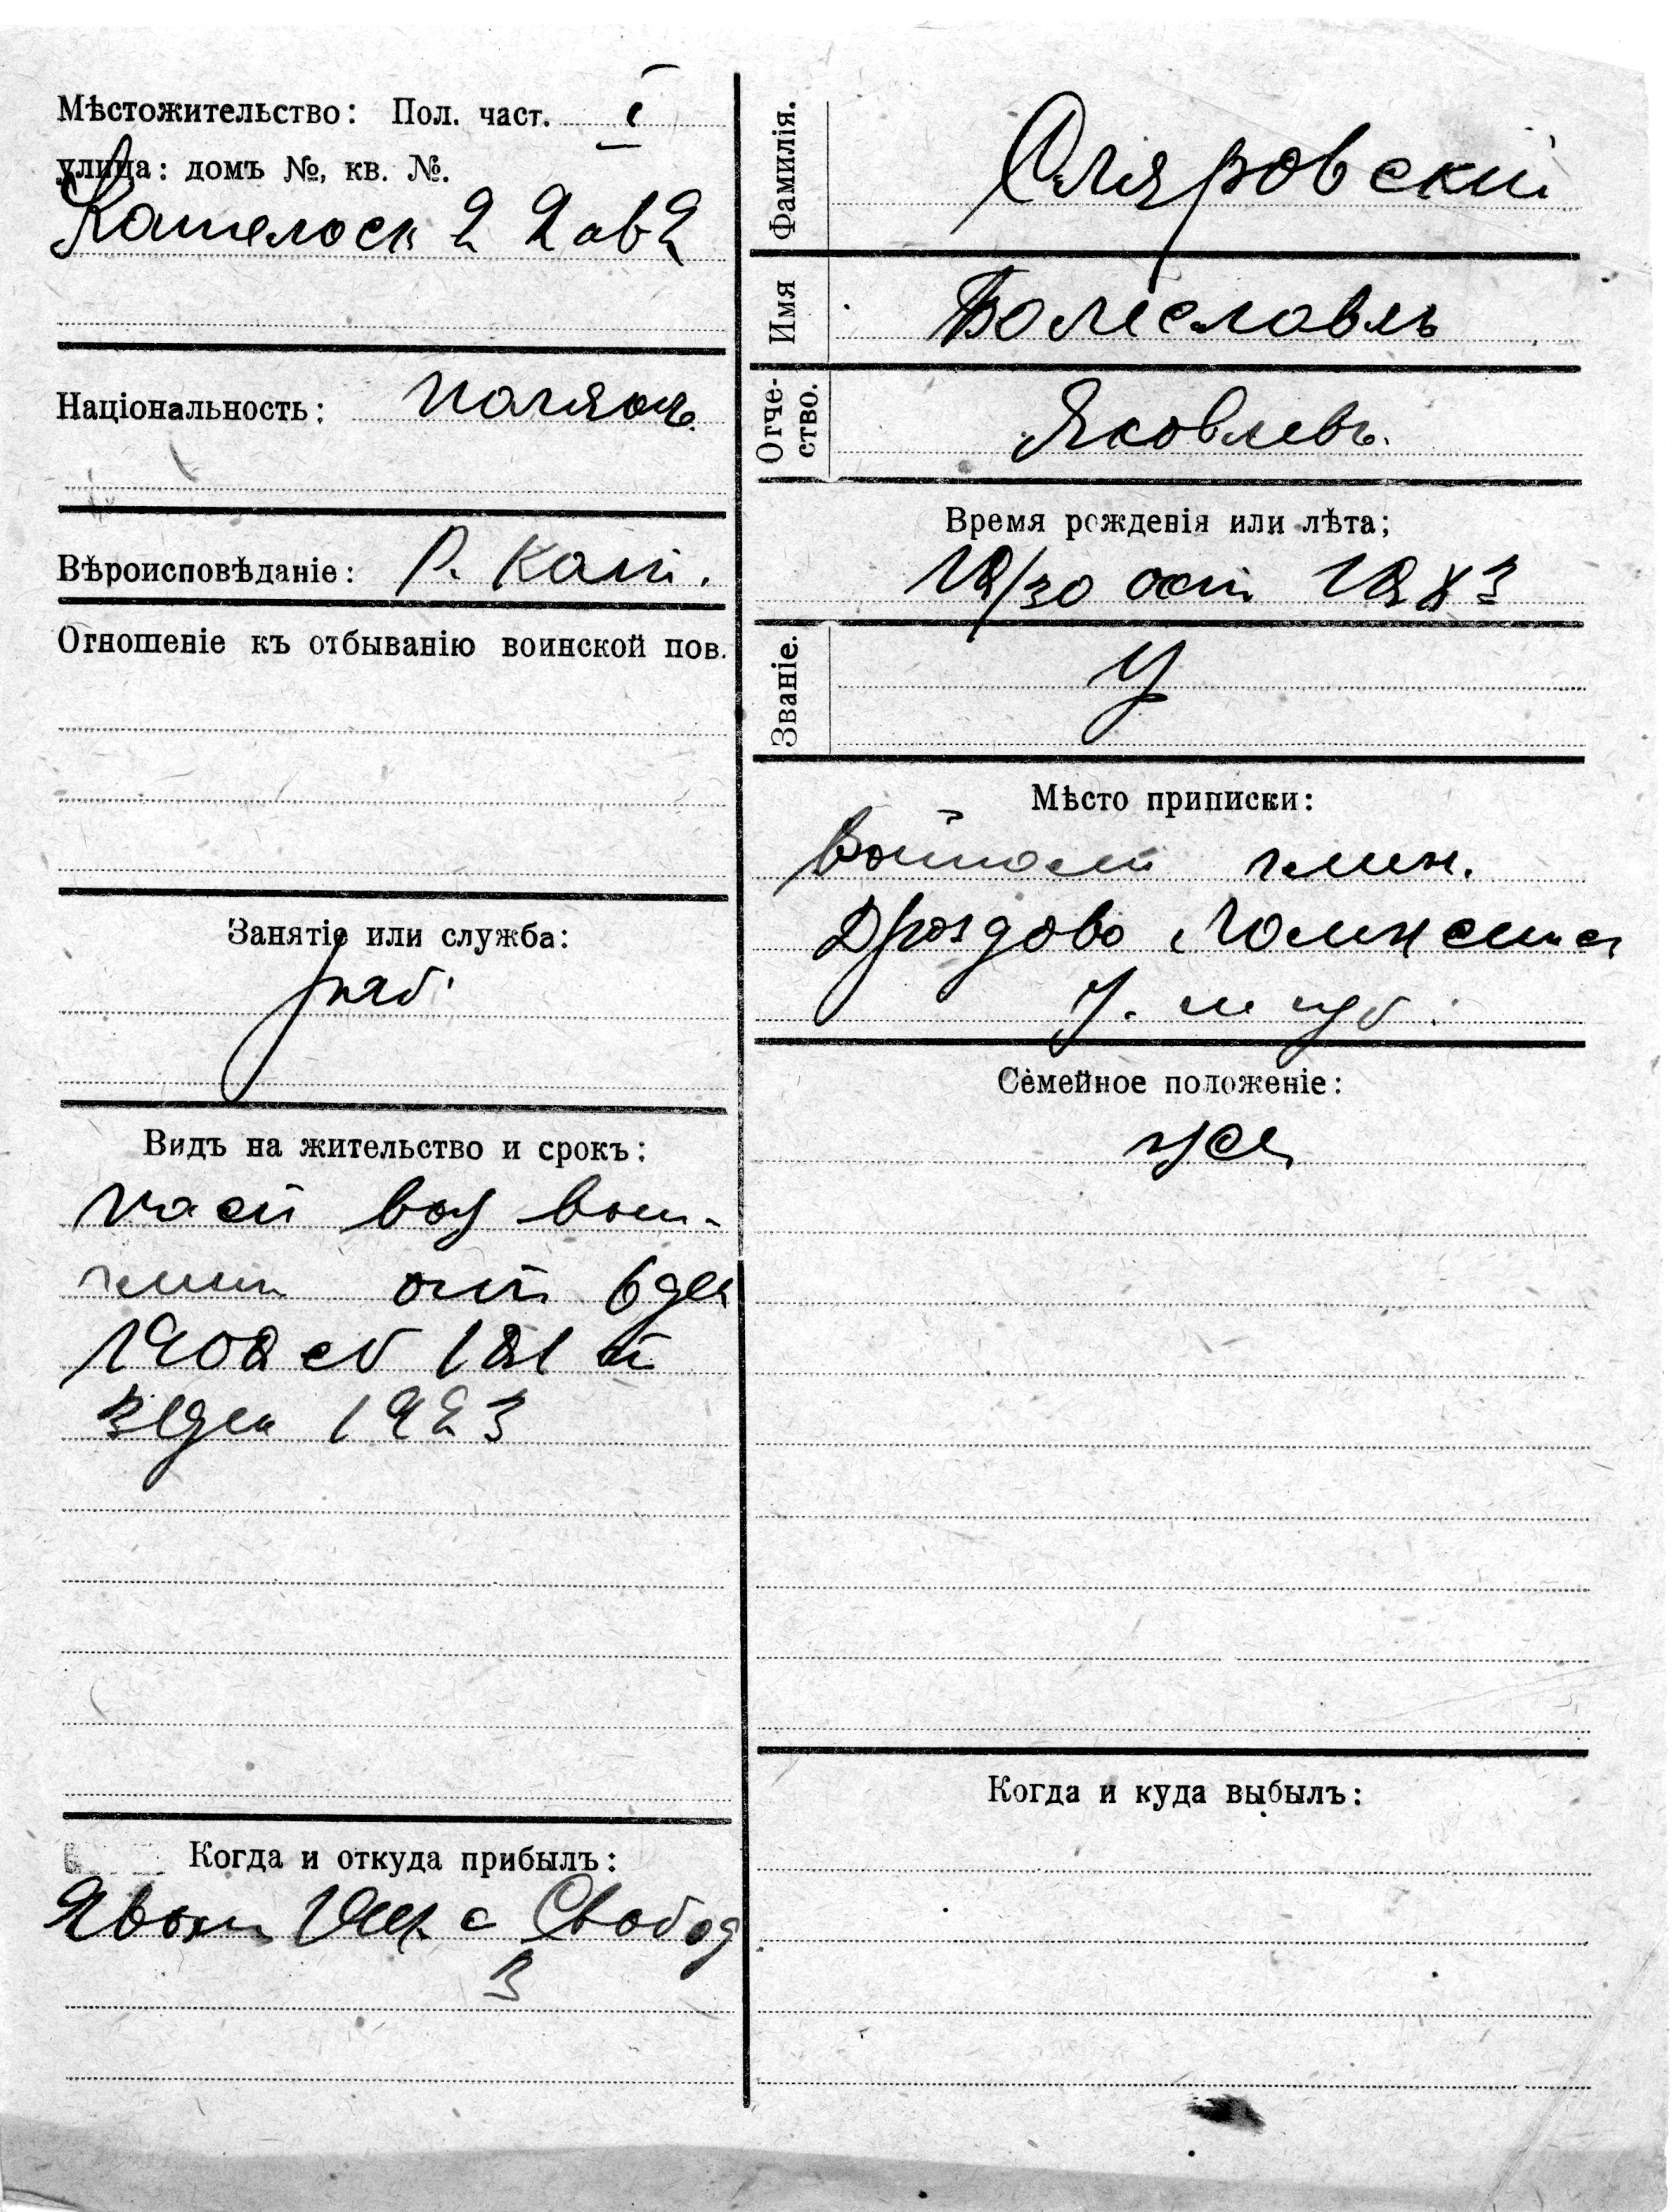 Мѣстожительство: Пол. част. I
улица: домъ №, кв. №.
2 2
Національность: Полякъ
Вѣроисповѣданіе: Р. Кат.
Отношеніе къ отбыванію воинской пов.
Занятіе или служба:
раб.
Видъ на жительство и срокъ:
гмин от 6 дек
1908 181
31 дек 1923
Когда и откуда прибылъ:
с Свобод
3
Фамилія. Оляровскій
Имя Болеславъ
Отче-
ство. Яковлевъ.
Время рожденія или лѣта:
18/30 окт 1883
Званіе.
Мѣсто приписки:
гмин.
Дроздово Ломжинск
у. и губ.
Семейное положеніе:
Когда и куда выбылъ: